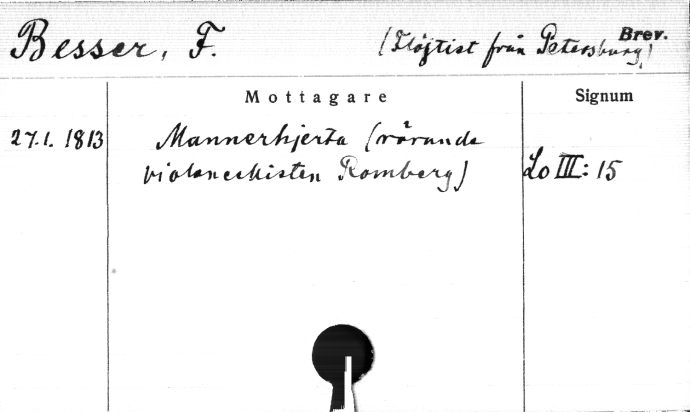 Brev.
Besser, F. (Flöjtist från Petersburg)
Mottagare Signum
27.1. 1813 Mannerhjerta (rörande
violoncellisten Romberg) Lo III: 15